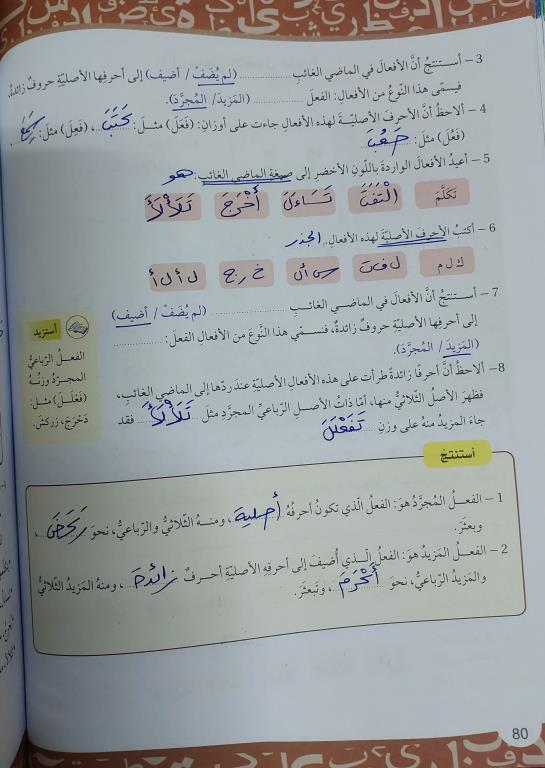 3 – أستنتجُ أنَّ الأفعالَ في الماضي الغائبِ ............ (لم يُضَفْ / أضيف) إلى أحرفِها الأصليّةِ حروفٌ زائدةٌ،
فيسمّى هذا النّوعُ من الأفعالِ: الفعلَ ............ (المَزيدَ / المُجرَّدَ).
4 – ألاحظُ أنَّ الأحرفَ الأصليّةَ لهذه الأفعالِ جاءت على أوزانِ: (فَعَلَ) مثل: كَتَبَ، (فَعِلَ) مثل:
(فَعُلَ) مثل: صَعُبَ
5 – أعيدُ الأفعالَ الواردةَ باللّونِ الأخضرِ إلى صيغةِ الماضي الغائبِ: هو
تَكَلَّمَ الْتَفَتَ تَسَاءَلَ أَخْرَجَ تَلَأْلَأَ
6 – أكتبُ الأحرفَ الأصليّةَ لهذه الأفعالِ. الجذر
ك ل م ل ف ت س أ ل خ ر ج ل أ ل أ
7 – أستنتجُ أنَّ الأفعالَ في الماضي الغائبِ ............ (لم يُضَفْ / أضيف)
إلى أحرفِها الأصليّةِ حروفٌ زائدةٌ، فنسمّي هذا النَّوعَ من الأفعالِ الفعلَ: ............
(المَزيدَ / المُجرَّدَ).
8 – ألاحظُ أنَّ أحرفًا زائدةً طرأت على هذه الأفعالِ الأصليّةِ عندَ ردّها إلى الماضي الغائبِ،
فظهرَ الأصلُ الثّلاثيُّ منها، أمّا ذاتُ الأصلِ الرّباعيِّ المجرَّدِ مثلَ تَلَأْلَأَ فقد
جاءَ المزيدُ منهُ على وزنِ تَفَعْلَلَ
أستزيد
الفعلُ الرّباعيُّ
المجرّدُ وزنُهُ
(فَعْلَلَ) مثل:
دَحْرَجَ، زركشَ.
أستنتجُ
1 – الفعلُ المُجرَّدُ هوَ: الفعلُ الّذي تكونُ أحرفُهُ أصلية، ومنهُ الثّلاثيُّ والرّباعيُّ، نحوَ رَكَضَ،
وبعثرَ.
2 – الفعلُ المَزيدُ هوَ: الفعلُ الّذي أُضيفَ إلى أحرفِهِ الأصليّةِ أحرفٌ زائدة، ومنهُ المَزيدُ الثّلاثيُّ
والمَزيدُ الرّباعيُّ، نحوَ أَكْرَمَ، وتَبعثرَ.
80